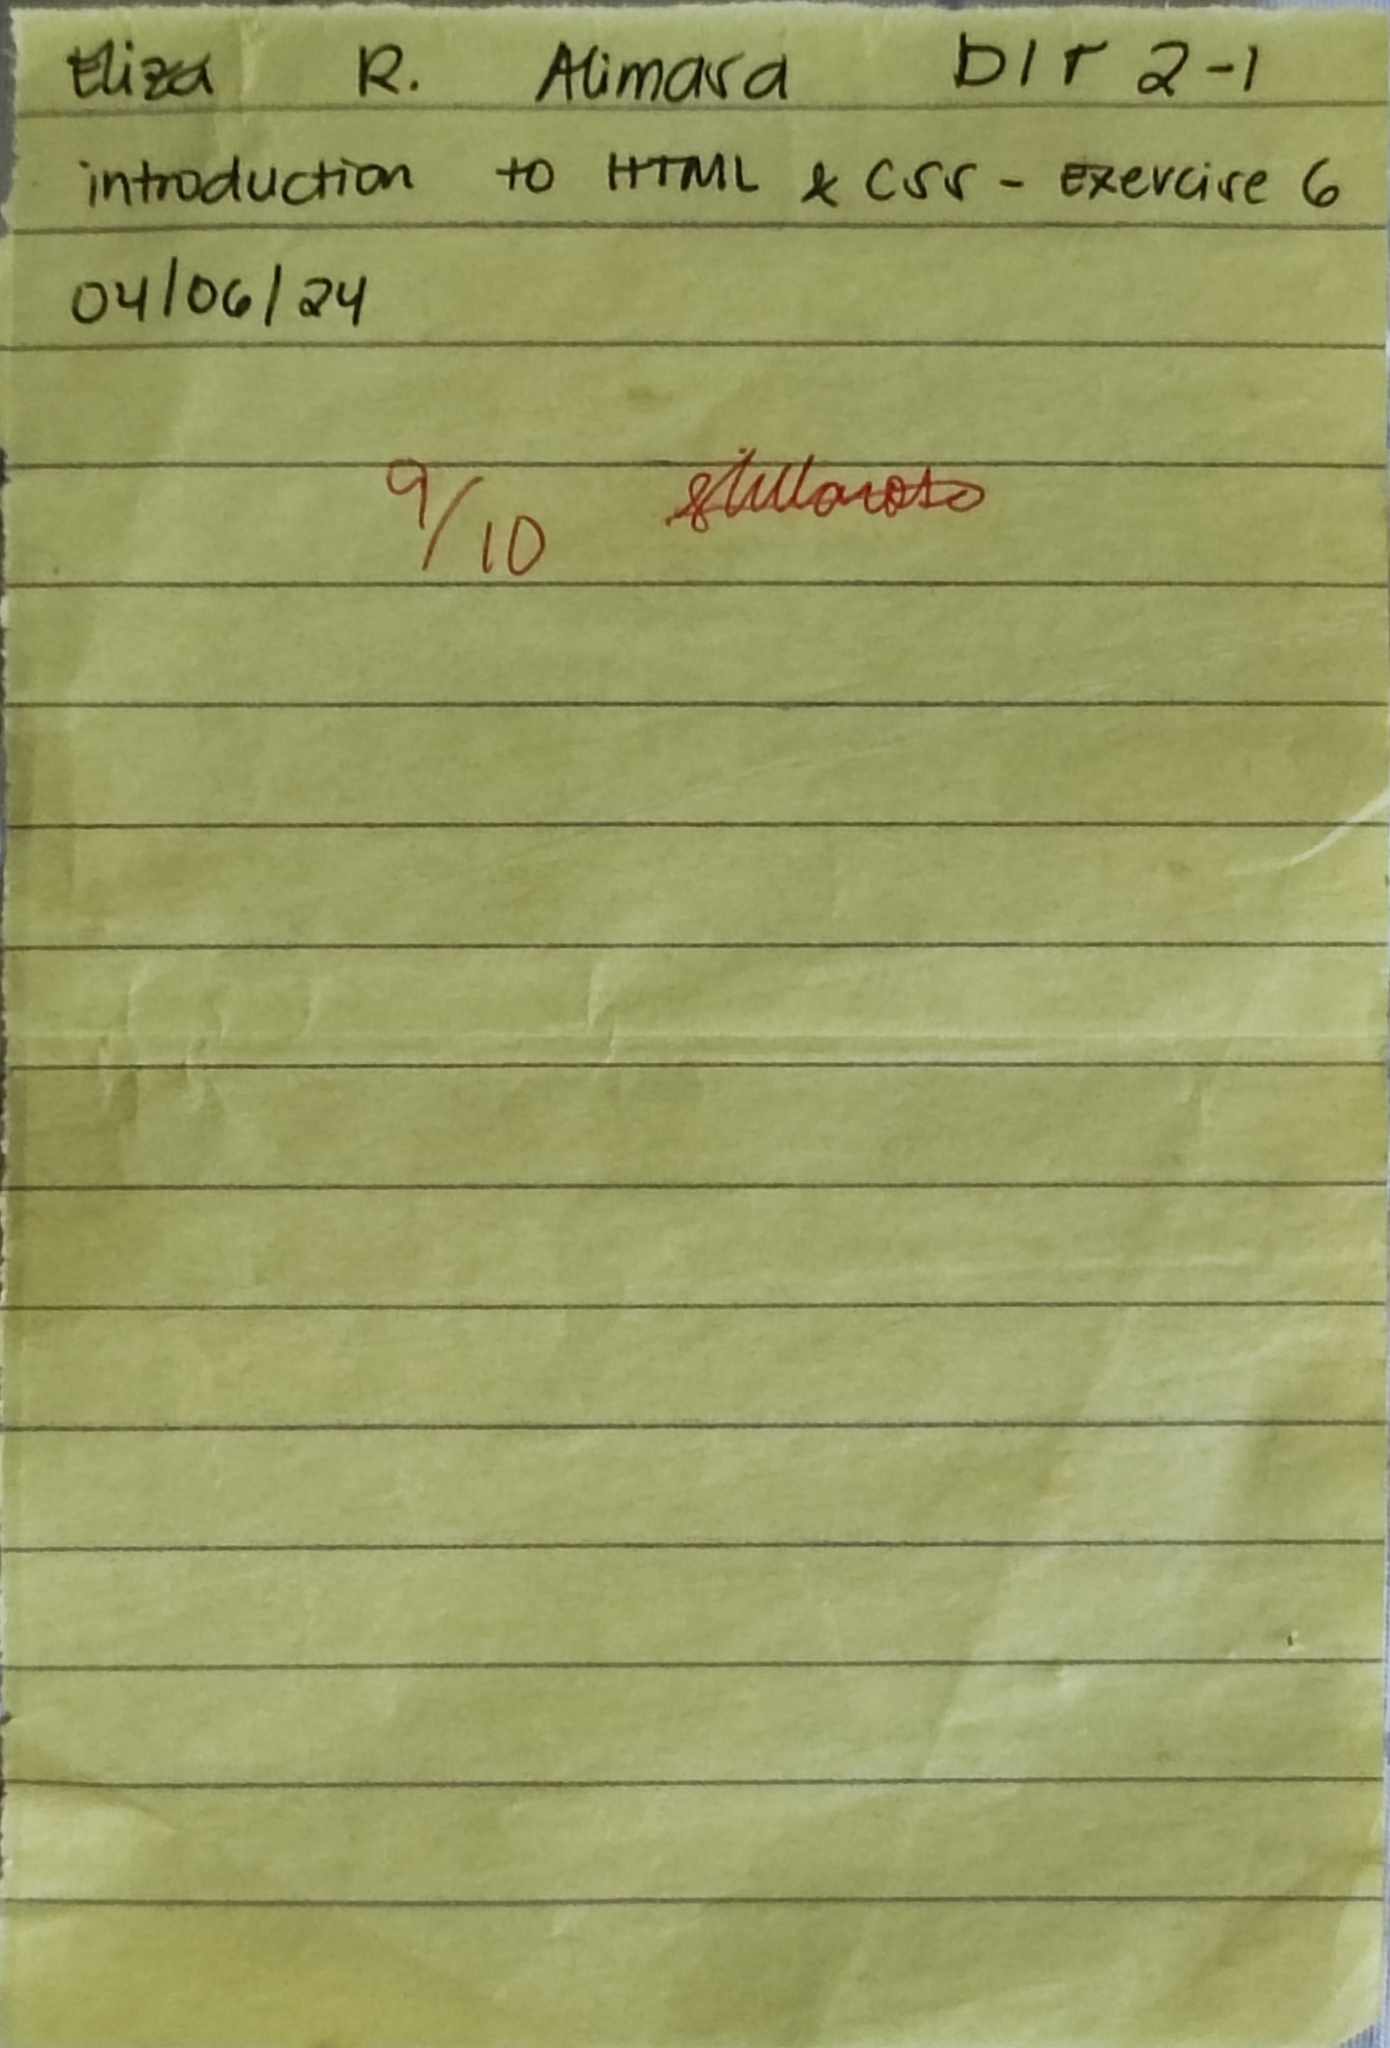 Eliza R. Alimara DIT 2-1
introduction to HTML & CSS - Exercise 6
04/06/24
9/10